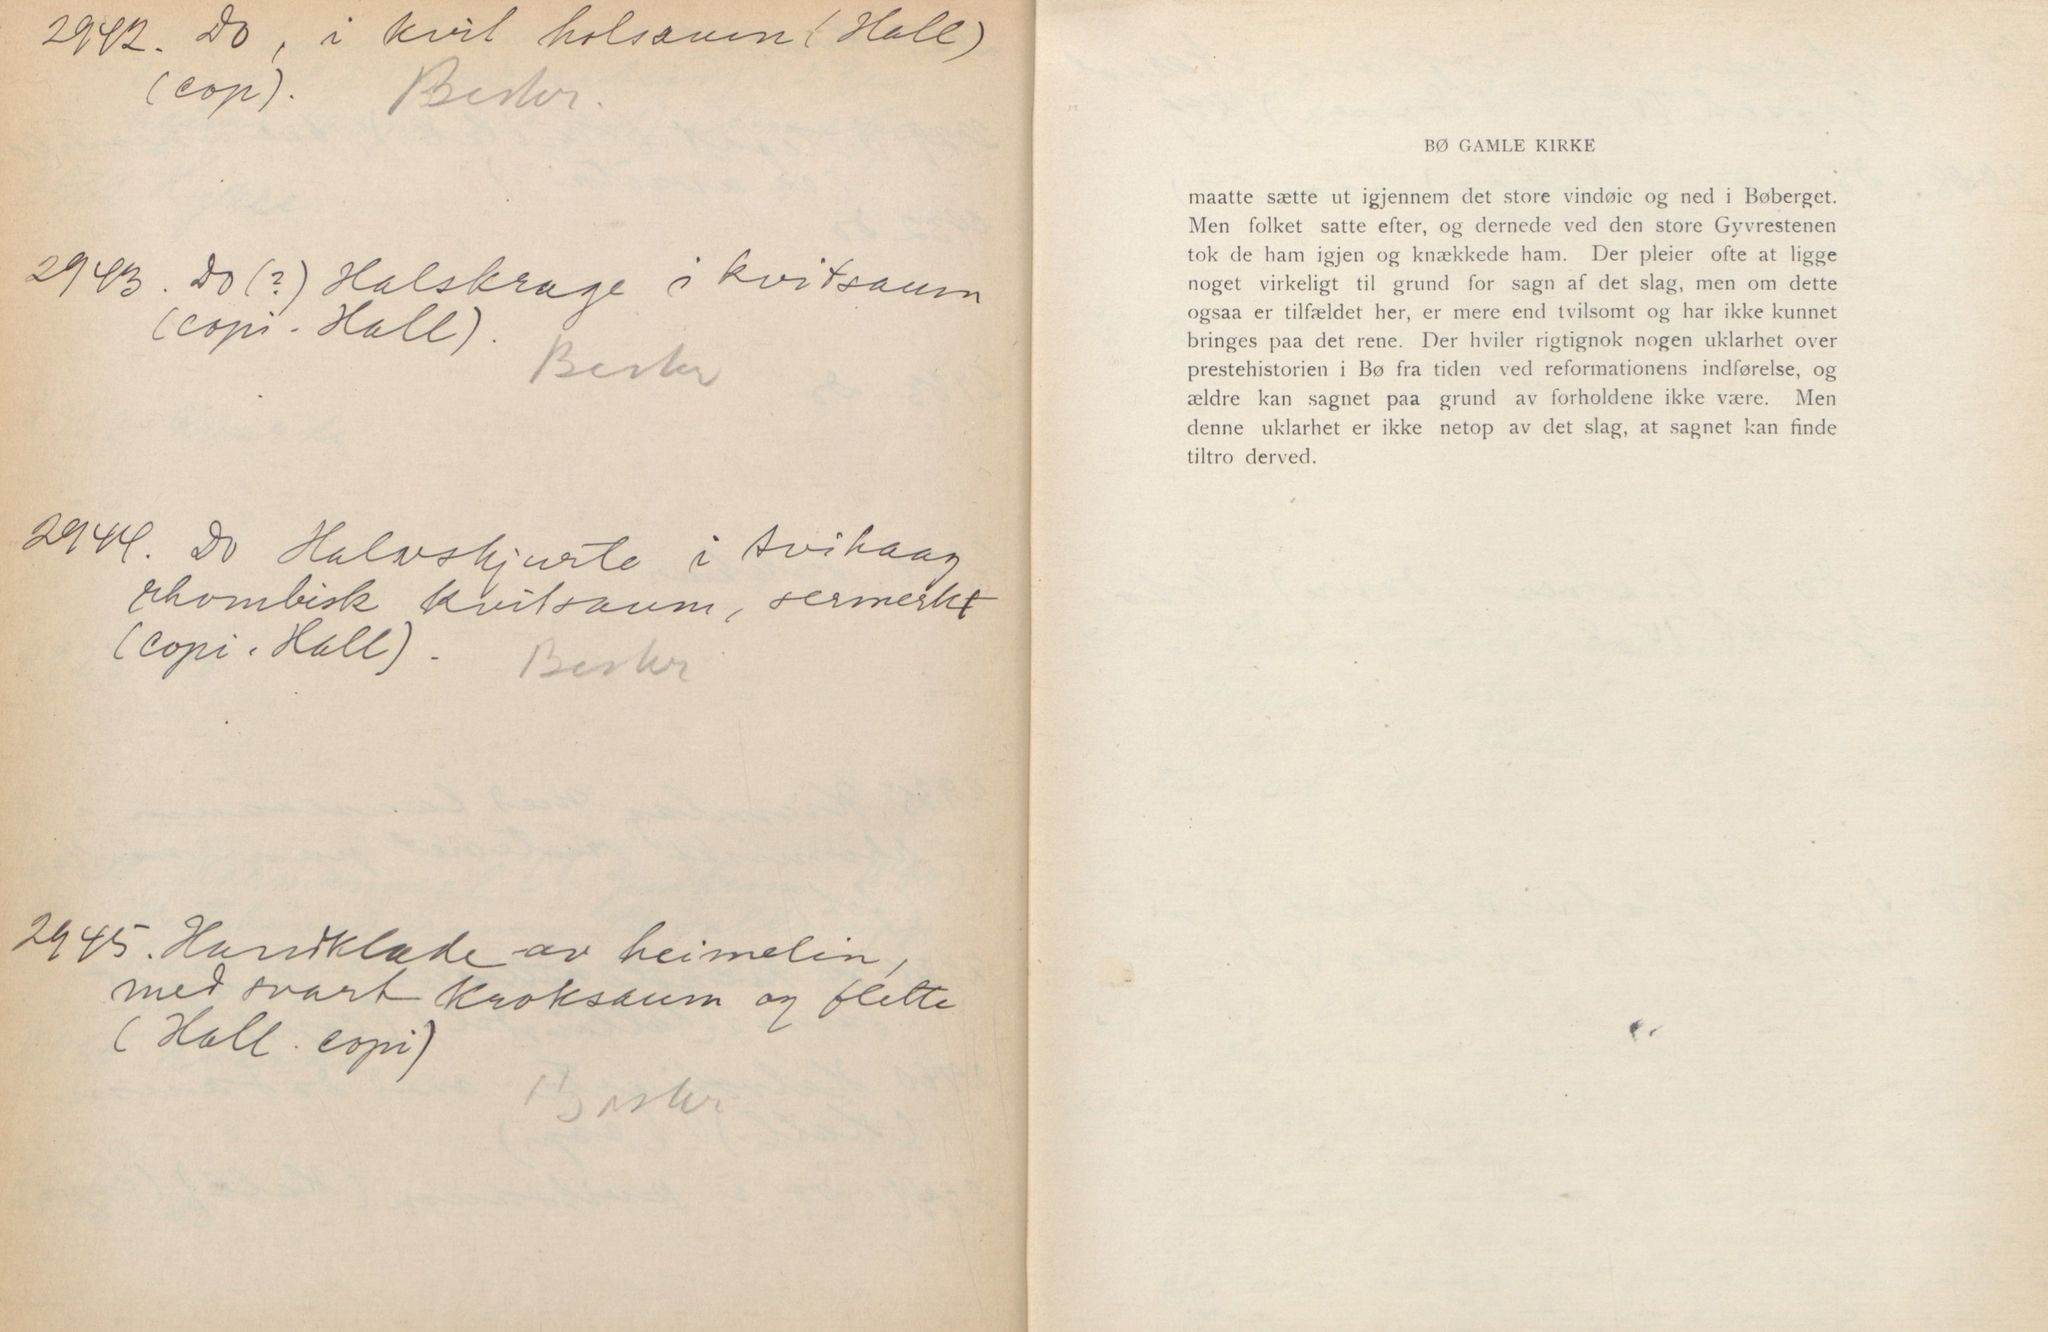 2942. Do, i kvit holsaum (Hall)
(cop). Beskr.
2943. Do (?) Halskrage i kvitsaum
(copi. Hall).
Beskr
2944. Do Halvskjurte i
rhombisk kvitsaum, sermerkt
(copi. Hall). Beskr
2945. Handklæde av heimelin,
med svart Kroksaum og flette
(Hall. copi)
Beskr
BØ GAMLE KIRKE
maatte sætte ut igjennem det store vindøie og ned i Bøberget.
Men folket satte efter, og dernede ved den store Gyvrestenen
tok de ham igjen og knækkede ham. Der pleier ofte at ligge
noget virkeligt til grund for sagn af det slag, men om dette
ogsaa er tilfældet her, er mere end tvilsomt og har ikke kunnet
bringes paa det rene. Der hviler rigtignok nogen uklarhet over
prestehistorien i Bø fra tiden ved reformationens indførelse, og
ældre kan sagnet paa grund av forholdene ikke være. Men
denne uklarhet er ikke netop av det slag, at sagnet kan finde
tiltro derved.